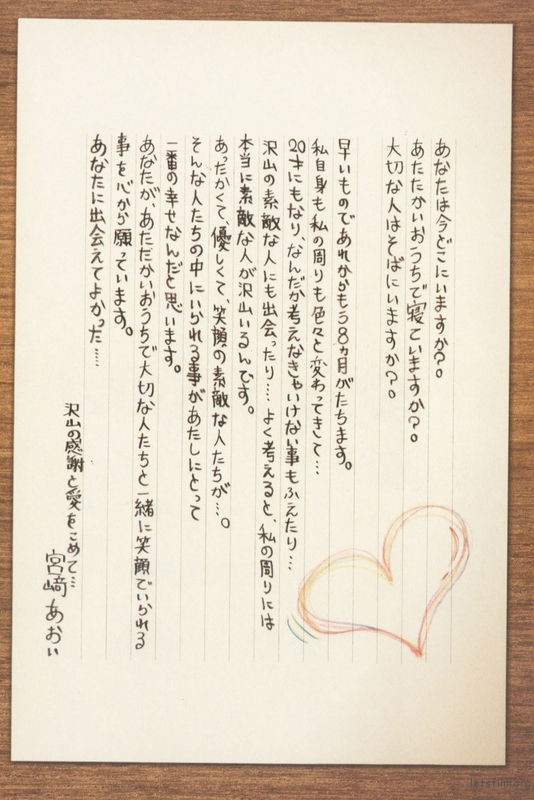 あなたは今どこにいますか?。
あたたかいおうちで寝ていますか?。
大切な人はそばにいますか?。
早いものであれからもう8ヵ月がたちます。
私自身も私の周りも色々と変わってきて…
20才にもなり、なんだか考えなきゃいけない事もふえたり…
沢山の素敵な人にも出会ったり…よく考えると、私の周りには
本当に素敵な人が沢山いるんです。
あったかくて、優しくて、笑顔の素敵な人たちが…。
そんな人たちの中にいられる事があたしにとって
一番の幸せなんだと思います。
あなたが、あただかいおうちで大切な人たちと一緒に笑顔でいられる
事を心から願っています。
あなたに出会えてよかった…
沢山の感謝と愛をこめて…
宮﨑あおい